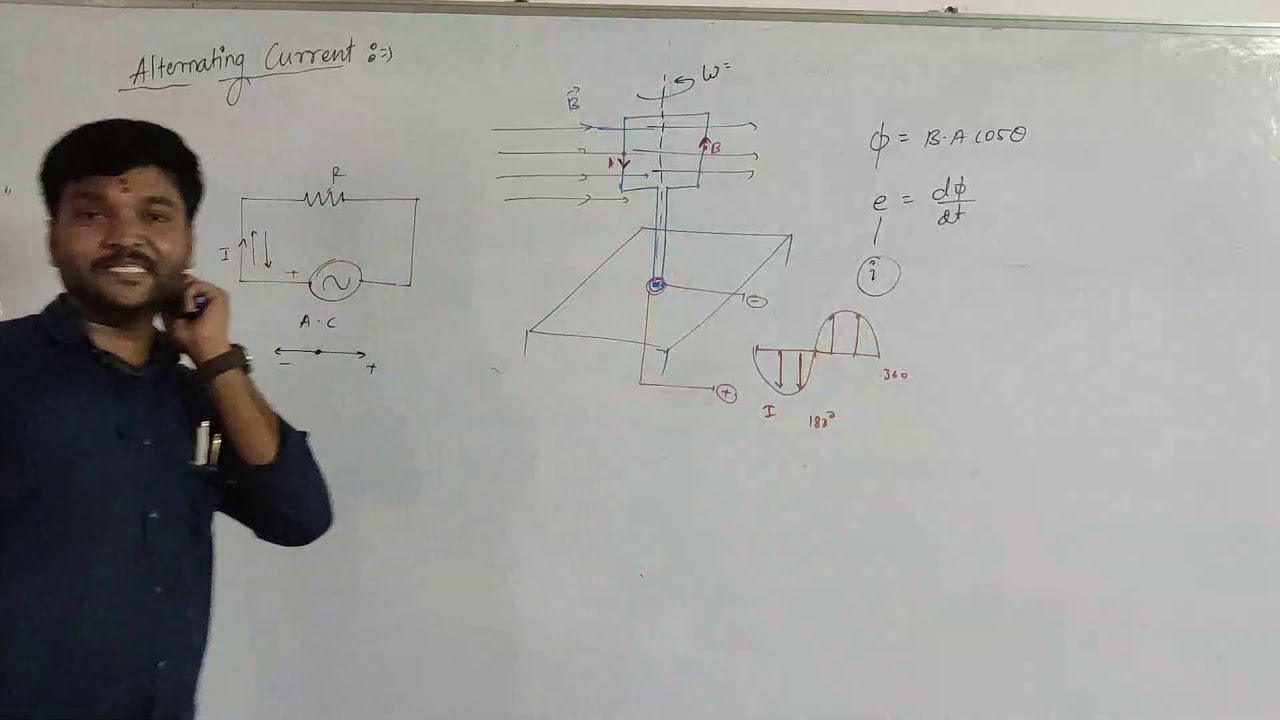 Alternating Current :⇒)
R
I
+
A·C
-
+
B⃗
W=
A
B
⊖
⊕
ϕ = B·A cosθ
e = dϕ/dt
i
I
180°
360